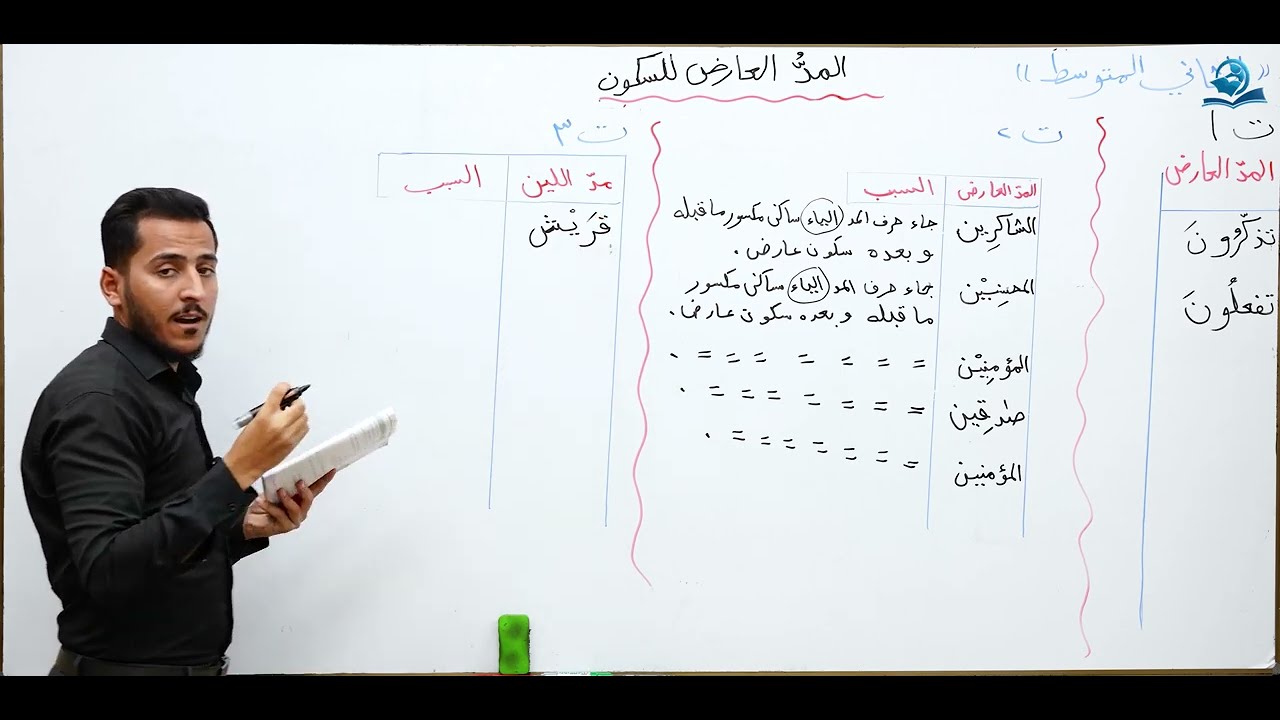 المدُّ العارض للسكون
ثاني المتوسط ))
ت ١
المدّ العارض
تذكَّرُونَ
تفعلُونَ
ت ٢
المدّ العارض
السبب
الشاكرِين
جاء حرف المد (الياء) ساكن مكسور ما قبله
وبعده سكون عارض.
المحسِنِيْن
جاء حرف المد (الياء) ساكن مكسور
ما قبله وبعده سكون عارض.
المؤمنِيْن
= = = = = = = .
صٰدقِين
= = = = = = = .
المؤمنين
= = = = = = = .
ت ٣
مدّ اللين
السبب
قرَيْش